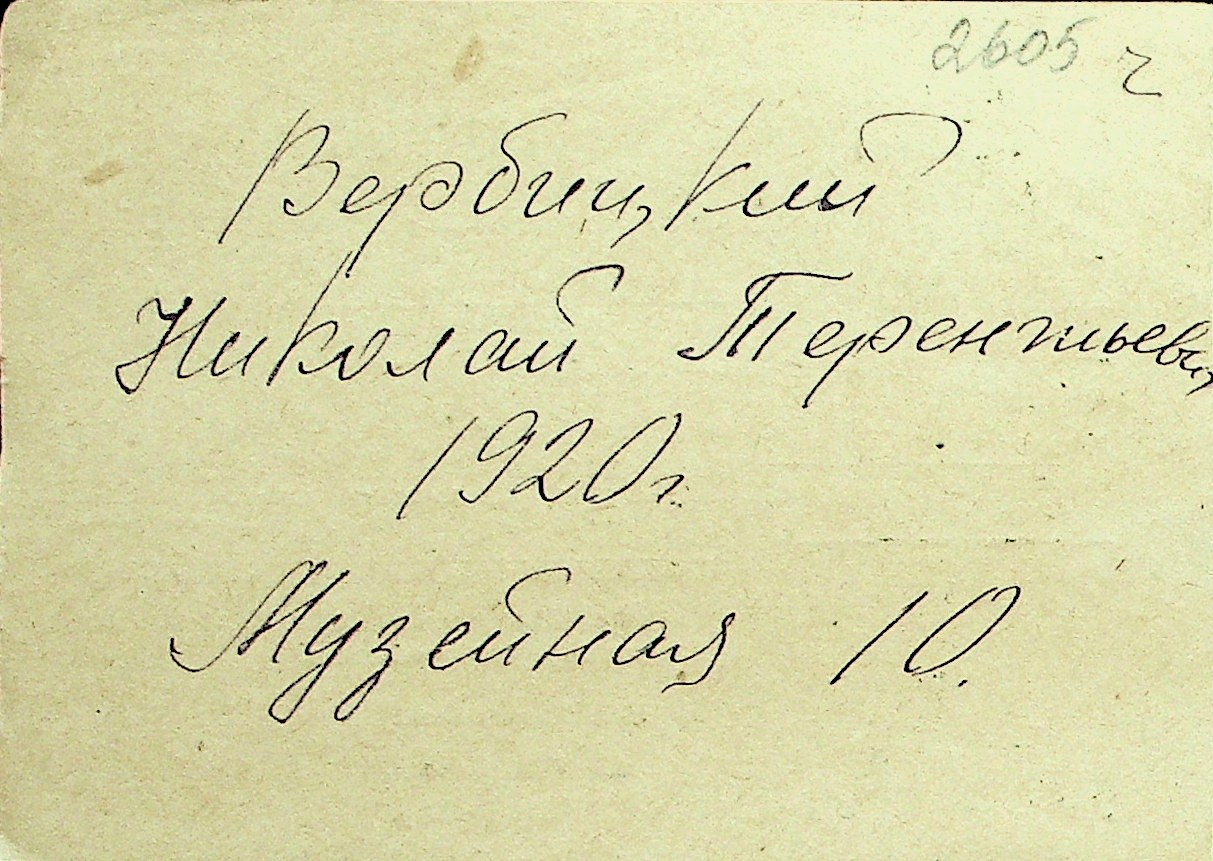 2605 г
Вербицкий
Николай Терентьевич
1920г.
Музейная 10.